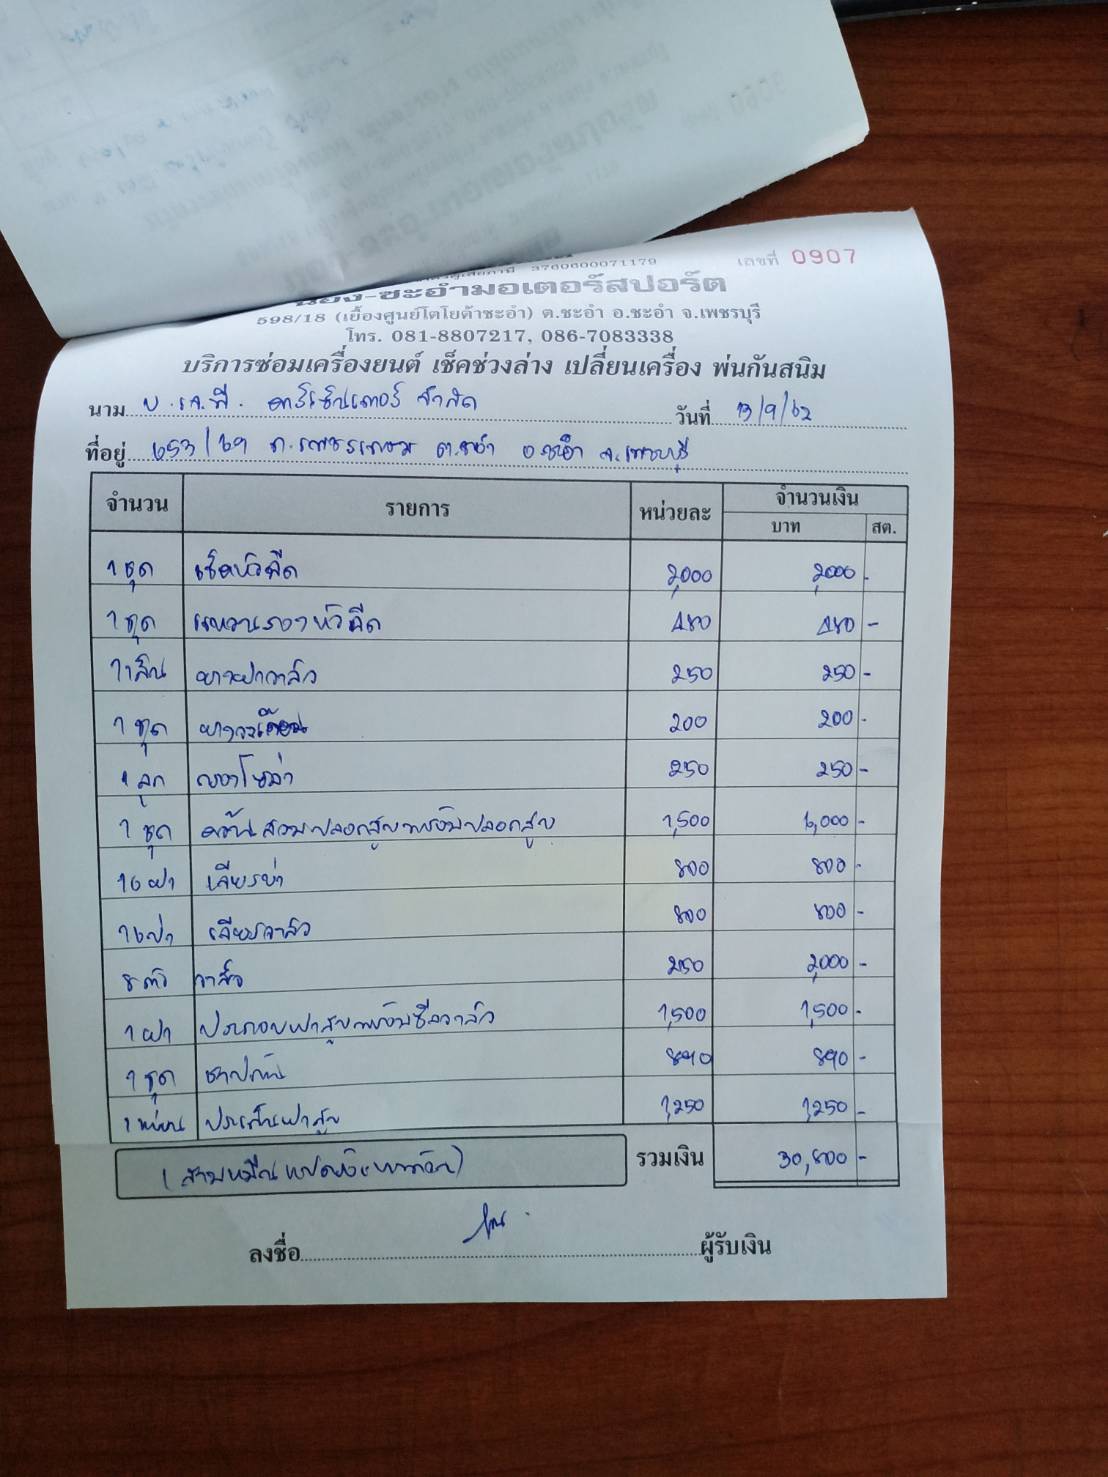 3760600071179 เลขที่ 0907
น้อง-ชะอำมอเตอร์สปอร์ต
598/18 (เยื้องศูนย์โตโยต้าชะอำ) ต.ชะอำ อ.ชะอำ จ.เพชรบุรี
โทร. 081-8807217, 086-7083338
บริการซ่อมเครื่องยนต์ เช็คช่วงล่าง เปลี่ยนเครื่อง พ่นกันสนิม
นาม บ.เจ.พี. คาร์เซ็นเตอร์ จำกัด วันที่ 13/9/62
ที่อยู่ 653/69 ถ.เพชรเกษม ต.ชะอำ อ.ชะอำ จ.เพชรบุรี
จำนวน รายการ หน่วยละ จำนวนเงิน
บาท สต.
1 ชุด เช็คหัวฉีด 2,000 2,000 -
1 ชุด แหวนรองหัวฉีด 480 480 -
1 เส้น ยางฝาวาล์ว 250 250 -
1 ชุด 200 200 -
1 ลูก 250 250 -
1 ชุด คว้านสวมปลอกสูบพร้อมปลอกสูบ 1,500 6,000 -
16 ฝา เจียรบ่า 800 800 -
16 เจียรวาล์ว 800 800 -
8 ตัว วาล์ว 250 2,000 -
1 ฝา ประกอบฝาสูบพร้อมซีลวาล์ว 1,500 1,500 -
1 ชุด ชาฟก้าน 890 890 -
1 แผ่น ประเก็นฝาสูบ 1,250 1,250 -
(สามหมื่นแปดร้อยบาทถ้วน) รวมเงิน 30,800 -
ลงชื่อ ผู้รับเงิน